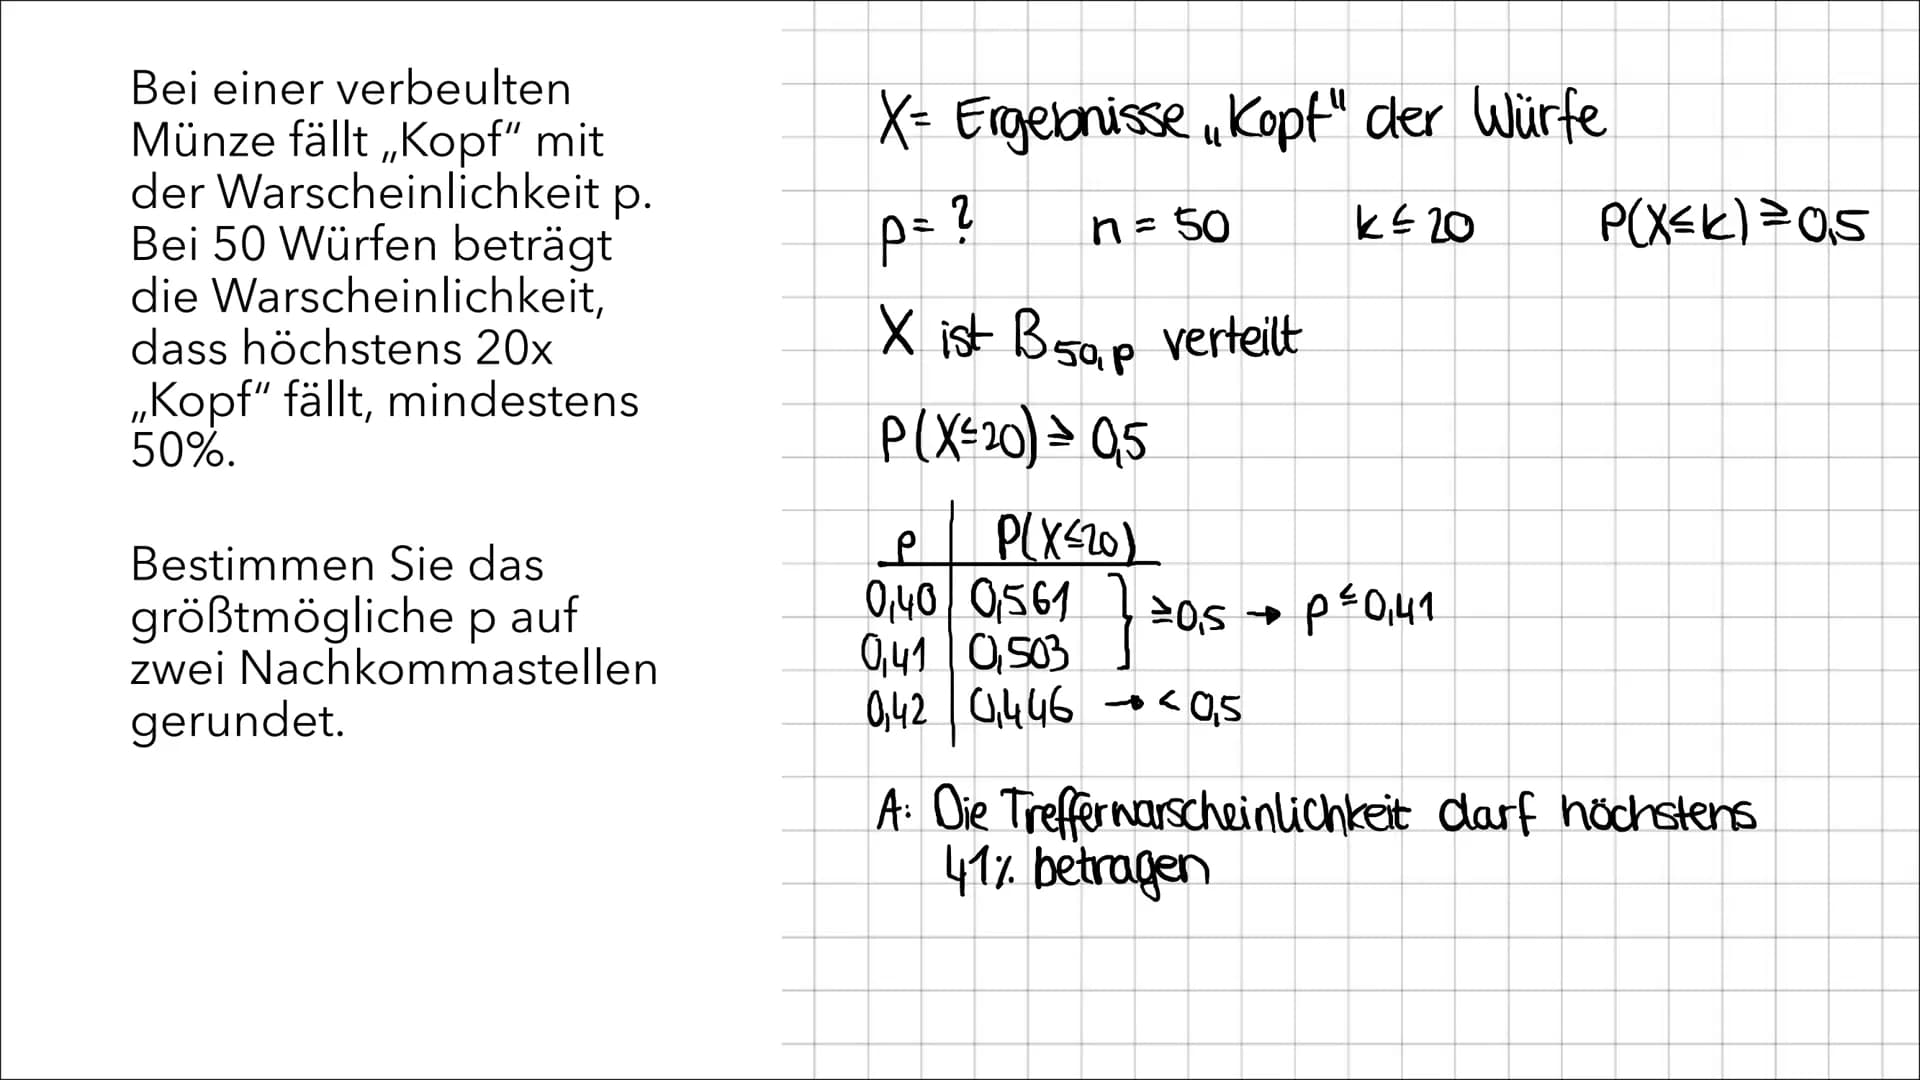 Bei einer verbeulten
Münze fällt „Kopf“ mit
der Warscheinlichkeit p.
Bei 50 Würfen beträgt
die Warscheinlichkeit,
dass höchstens 20x
„Kopf“ fällt, mindestens
50%.
Bestimmen Sie das
größtmögliche p auf
zwei Nachkommastellen
gerundet.
X= Ergebnisse „Kopf“ der Würfe
p= ? n = 50 k ≤ 20 P(X≤k) ≥ 0,5
X ist B50,p verteilt
P(X≤20) ≥ 0,5
p P(X≤20)
0,40 0,561
≥0,5 → p ≤ 0,41
0,41 0,503
0,42 0,446 → < 0,5
A: Die Trefferwarscheinlichkeit darf höchstens
41% betragen